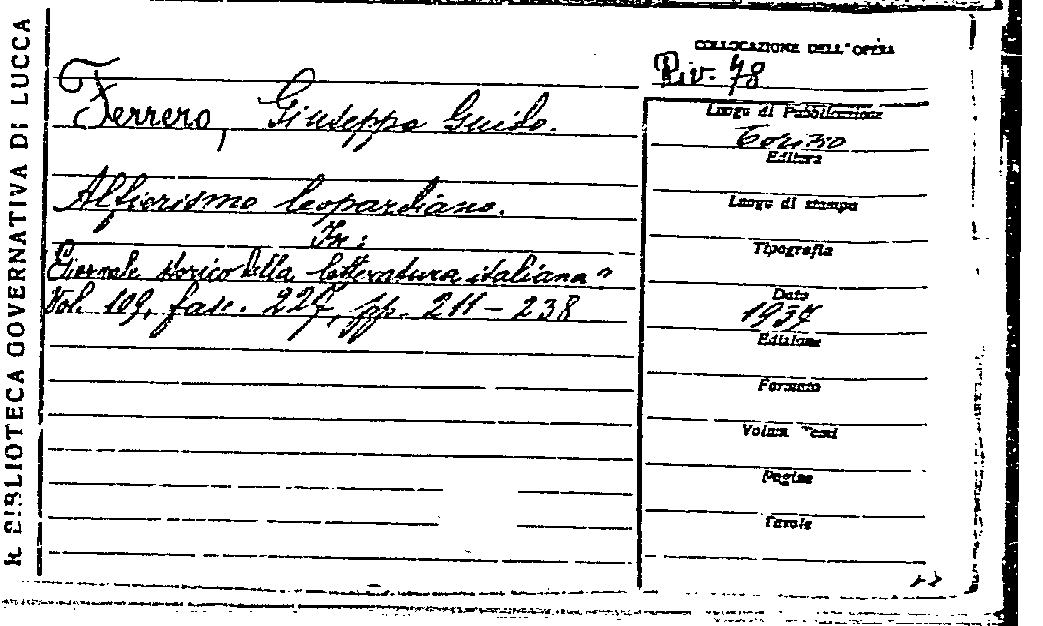 R. BIBLIOTECA GOVERNATIVA DI LUCCA
COLLOCAZIONE DELL'OPERA
Riv. 78
Ferrero, Giuseppe Guido.
Alfierismo leopardiano.
In:
Giornale storico della letteratura italiana"
Vol. 109, fasc. 227, pp. 211-238
Luogo di Pubblicazione
Torino
Editore
Luogo di stampa
Tipografia
Data
1937
Edizione
Formato
Volumi Tomi
Pagine
Tavole